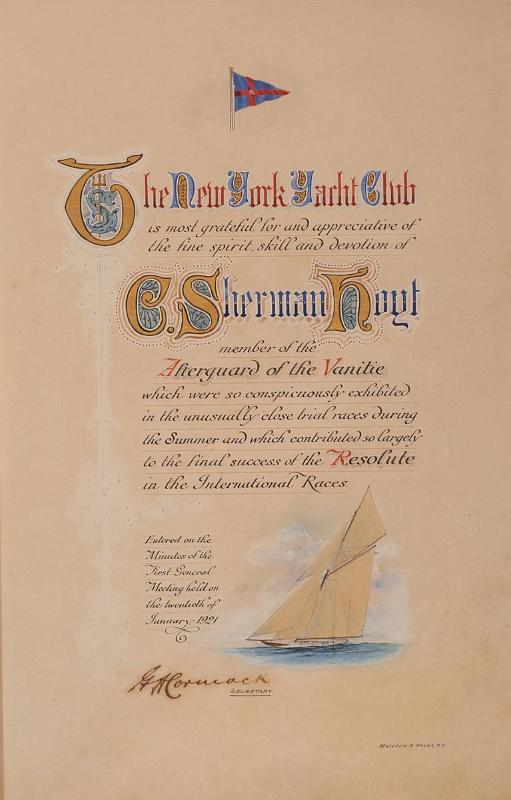 The New York Yacht Club
is most grateful for and appreciative of
the fine spirit, skill and devotion of
C. Sherman Hoyt
member of the
Afterguard of the Vanitie
which were so conspicuously exhibited
in the unusually close trial races during
the Summer and which contributed so largely
to the final success of the Resolute
in the International Races
Entered on the
Minutes of the
First General
Meeting held on
the twentieth of
January - 1921
G A Cormack
SECRETARY